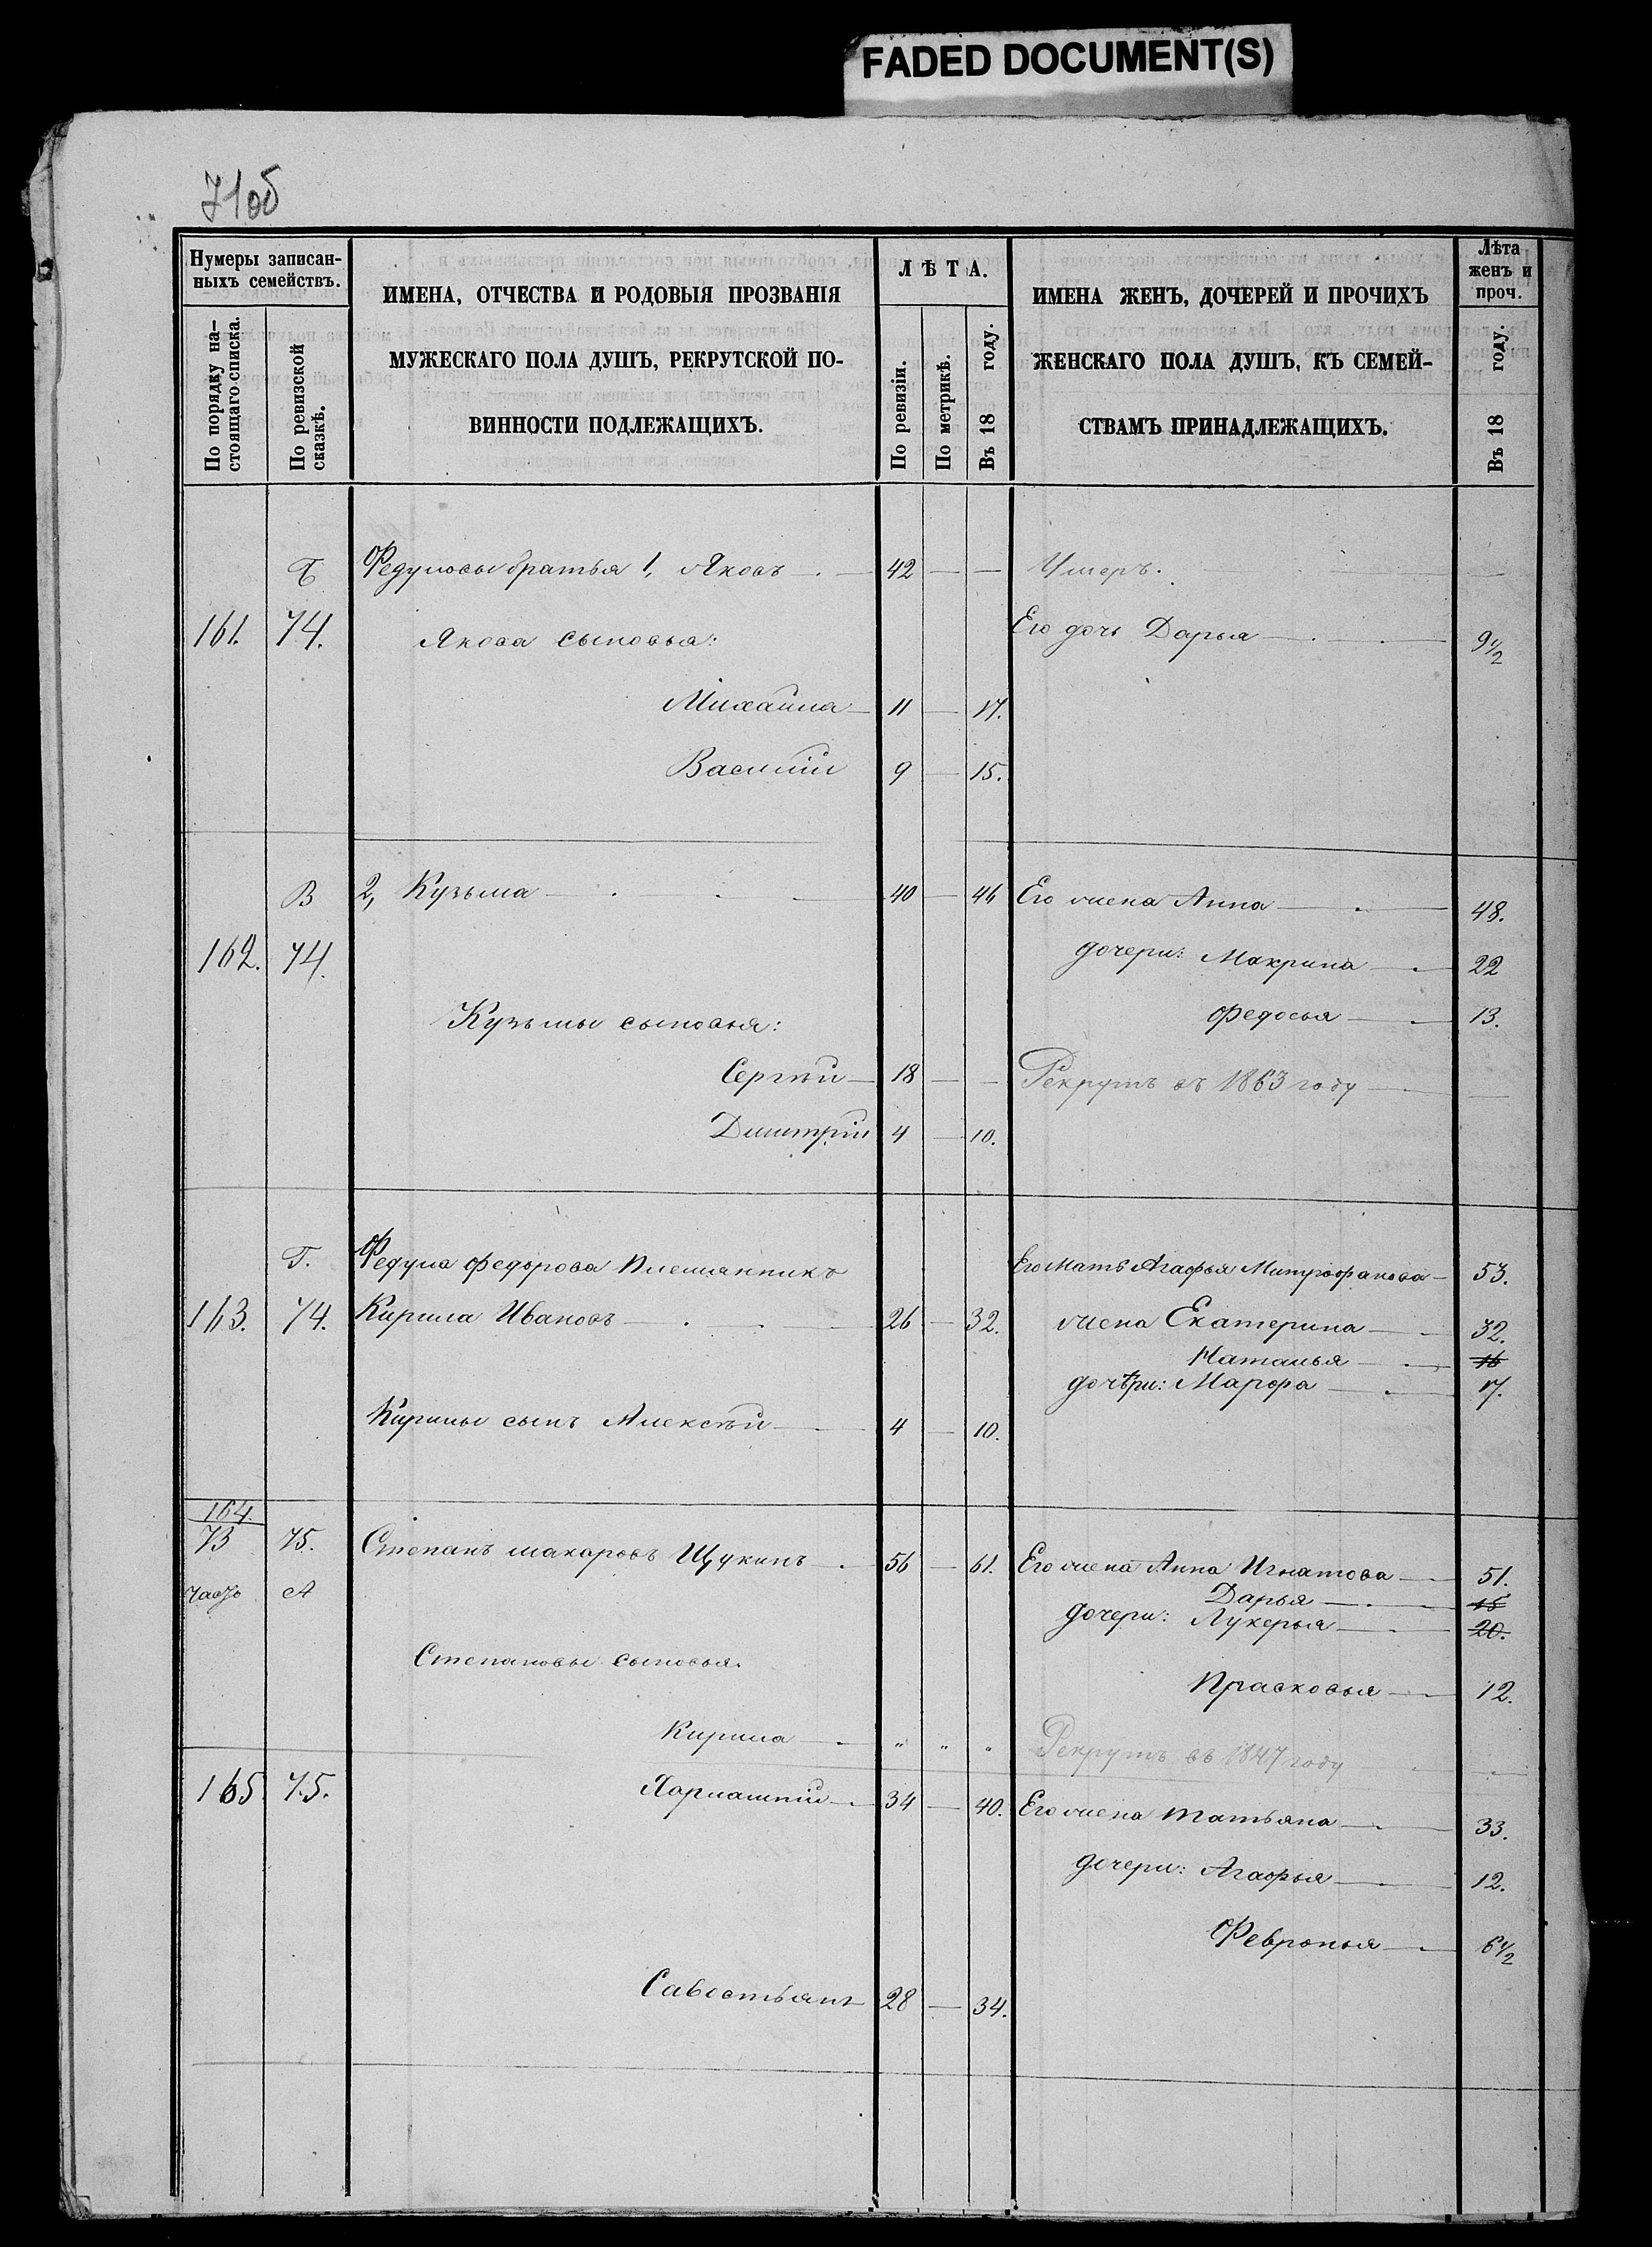 FADED DOCUMENT(S)
71об
Нумеры записан-
ныхъ семействъ.
По порядку на-
стоящаго списка.
По ревизской
сказкѣ.
ИМЕНА, ОТЧЕСТВА И РОДОВЫЯ ПРОЗВАНІЯ
МУЖЕСКАГО ПОЛА ДУШЪ, РЕКРУТСКОЙ ПО-
ВИННОСТИ ПОДЛЕЖАЩИХЪ.
ЛѢТА.
По ревизіи.
По метрикѣ.
Въ 18 году.
ИМЕНА ЖЕНЪ, ДОЧЕРЕЙ И ПРОЧИХЪ
ЖЕНСКАГО ПОЛА ДУШЪ, КЪ СЕМЕЙ-
СТВАМЪ ПРИНАДЛЕЖАЩИХЪ.
Лѣта
женъ и
проч.
Въ 18 году.
Б Федуловы братья 1, Яковъ — 42 — — Умеръ. —
161. 74. Якова сыновья: Его дочь Дарья — 9 1/2
Михаила — 11 — 17.
Василій 9 — 15.
В 2, Кузьма — 40 — 46 Его жена Анна — 48.
162. 74. дочери: Макрина — 22
Кузьмы сыновья: Федосья — 13.
Сергѣй — 18 — — Рекрутъ въ 1863 году —
Дмитрій 4 — 10.
Г. Федула Федорова племянникъ Его мать Агафья Митрофанова — 53.
163. 74. Кирила Ивановъ — 26 — 32. жена Екатерина — 32.
Наталья — 16
дочѣри: Марфа — 17.
Кирилы сынъ Алексѣй — 4 — 10.
164.
73 75. Степанъ Макаровъ Щукинъ — 56 — 61. Его жена Анна Игнатова — 51.
часть А Дарья — 15
дочери: Лукерья — 20.
Степановы сыновья.
Прасковья — 12.
Кирила — " " " Рекрутъ въ 1847 году —
165 75. Харлампій — 34 — 40. Его жена Татьяна — 33.
дочери: Агафья — 12.
Февронья — 6 1/2
Савостьянъ 28 — 34.